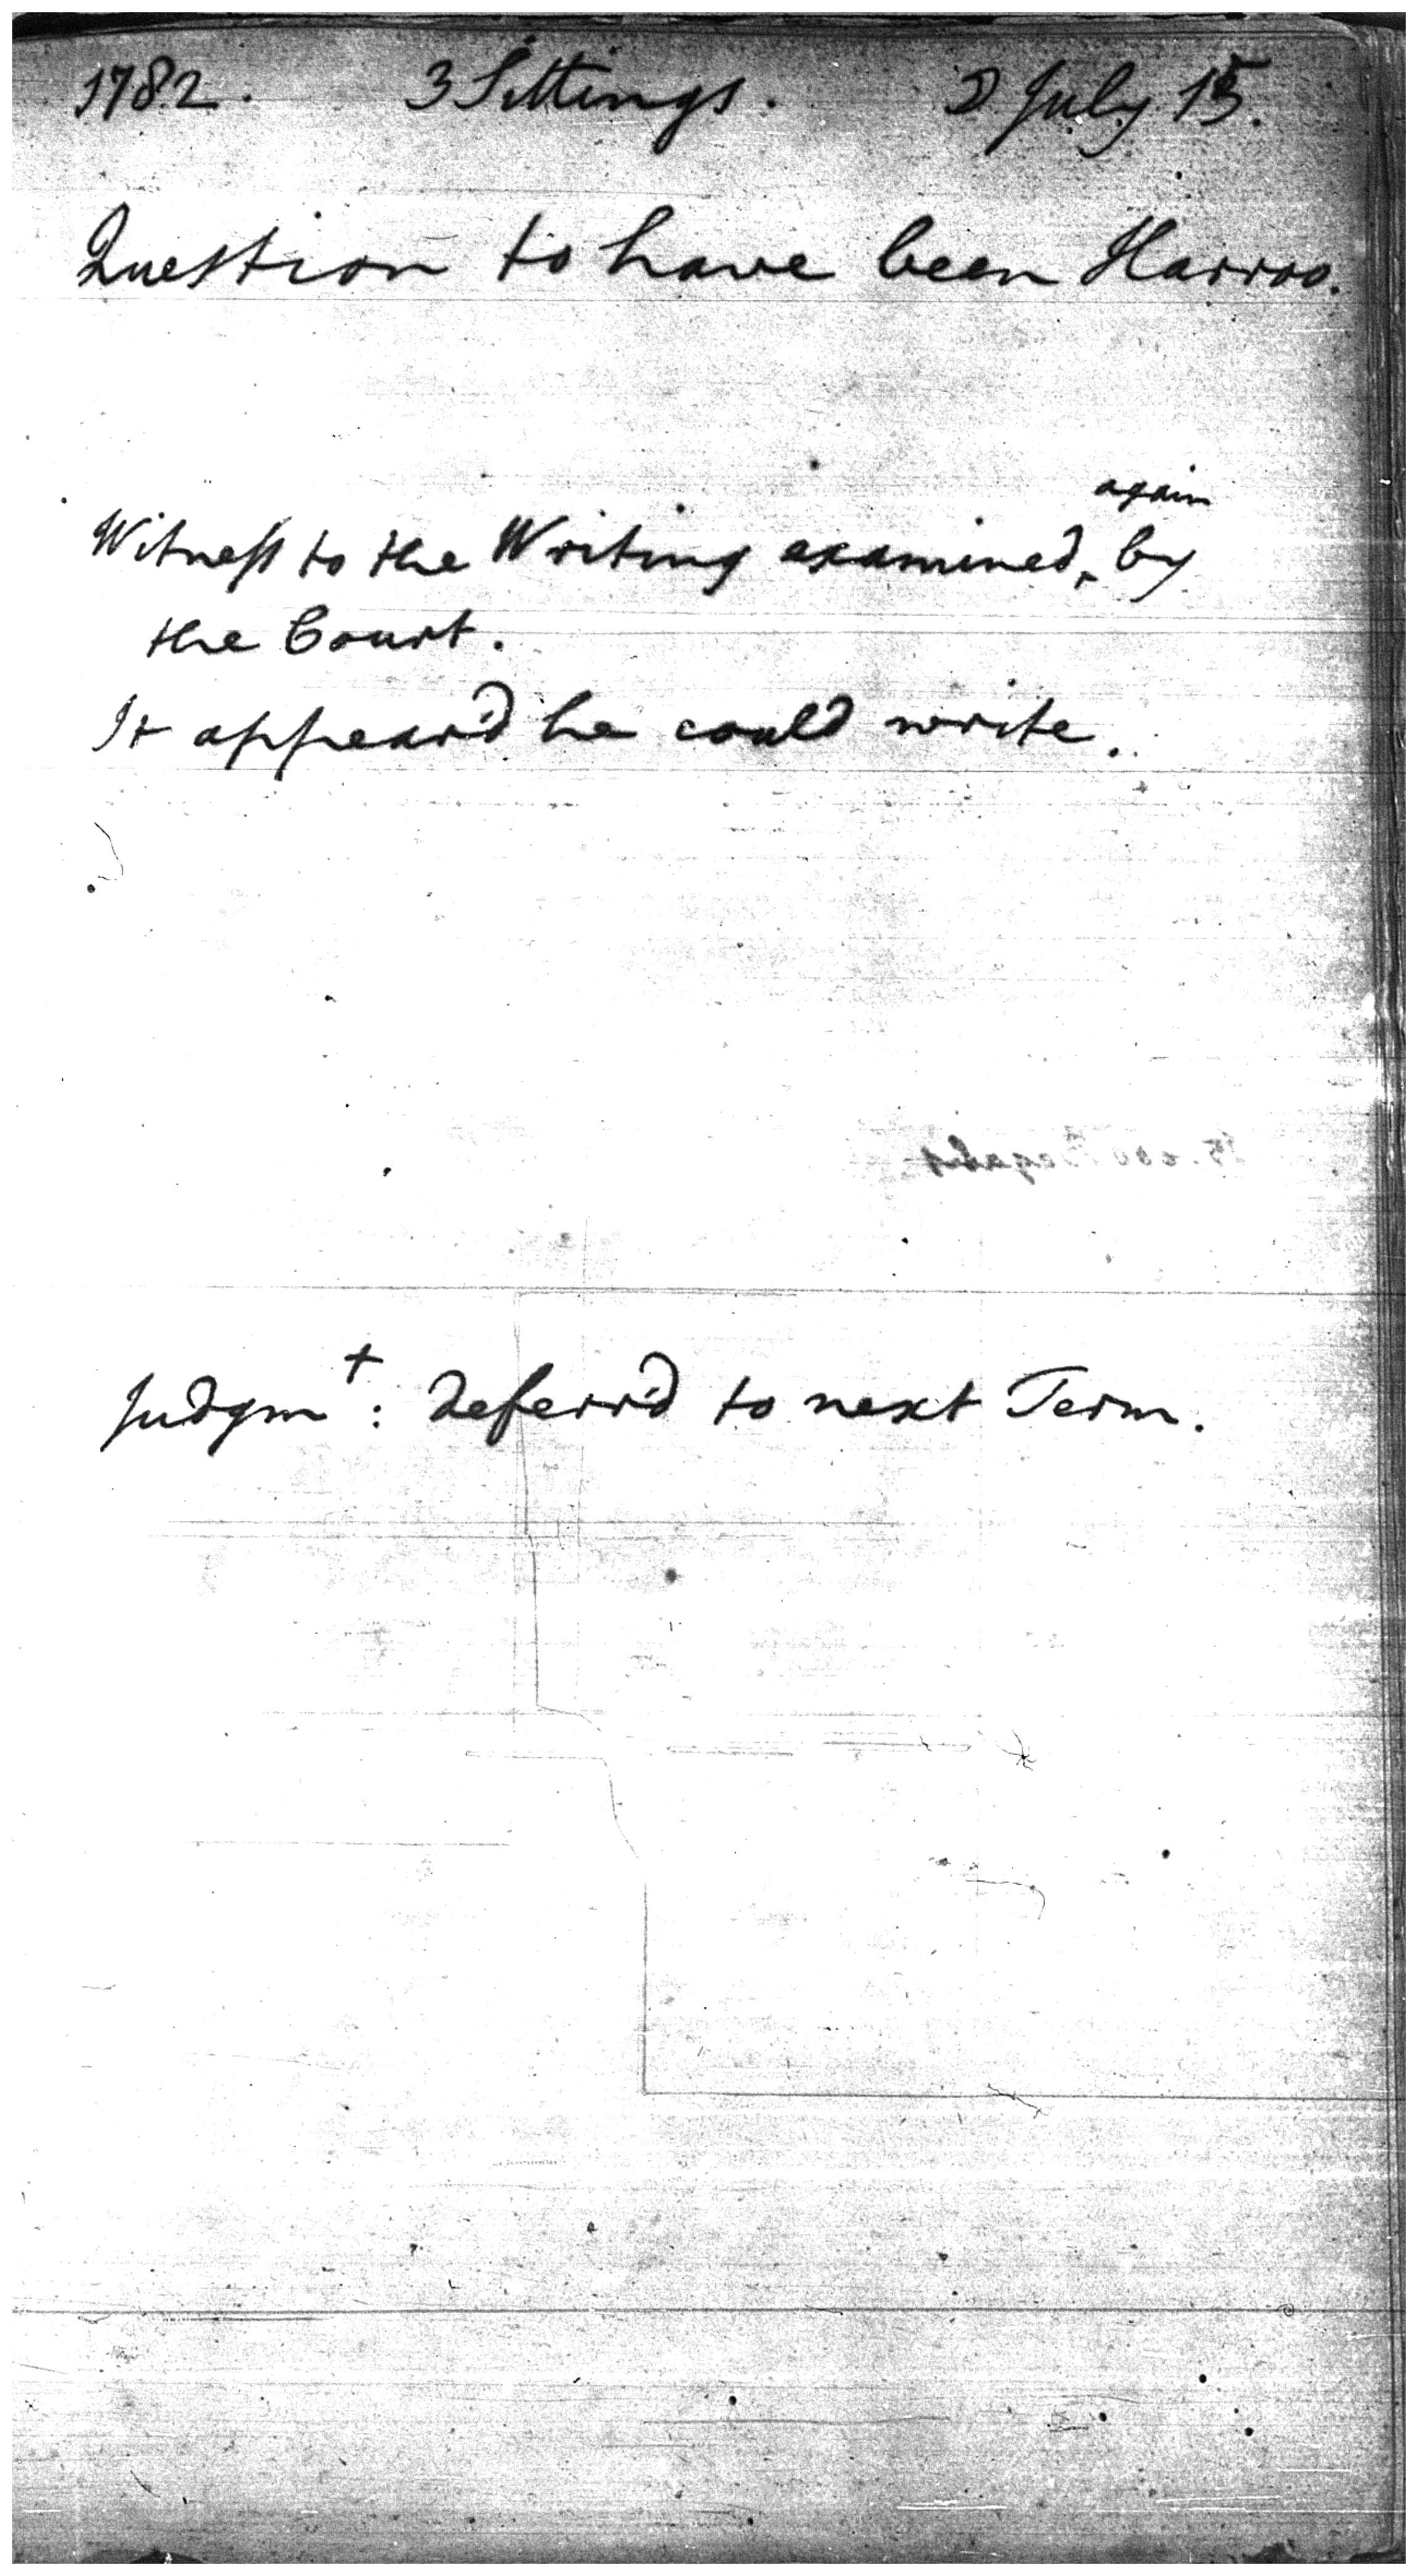 1782. 3 Sittings. July 15.
Question to have been Harroo.
again
Witness to the Writing examined, by
the Court.
It appear'd he could write.
Judgmt: deferr'd to next Term.